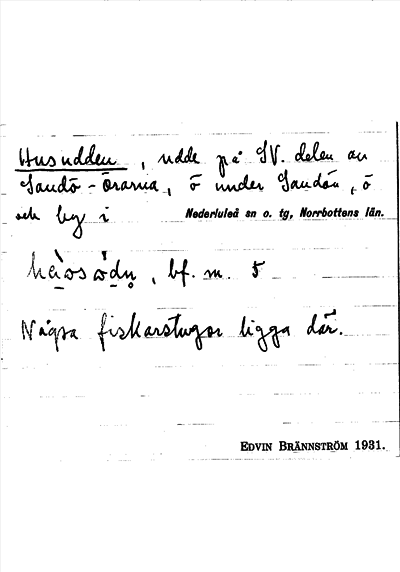 Husudden, udde på SV. delen av
Sandö-Örarna, ö under Sandön, ö
och by i Nederluleå sn o. tg, Norrbottens län.
, bf. m. 5
Några fiskarstugor ligga där.
EDVIN BRÄNNSTRÖM 1931.